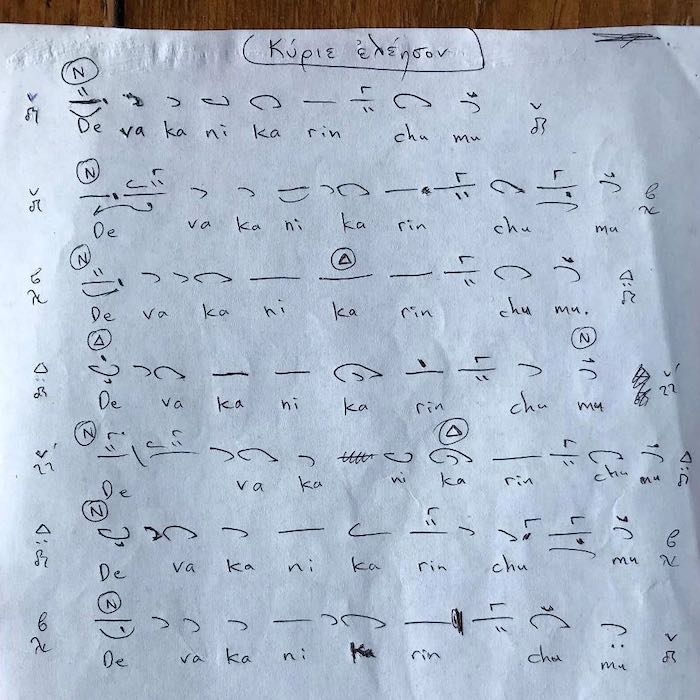 Κύριε ἐλέησον
De va ka ni ka rin chu mu
De va ka ni ka rin chu mu
De va ka ni ka rin chu mu.
De va ka ni ka rin chu mu
De va ka ni ka rin chu mu
De va ka ni ka rin chu mu
De va ka ni ka rin chu mu